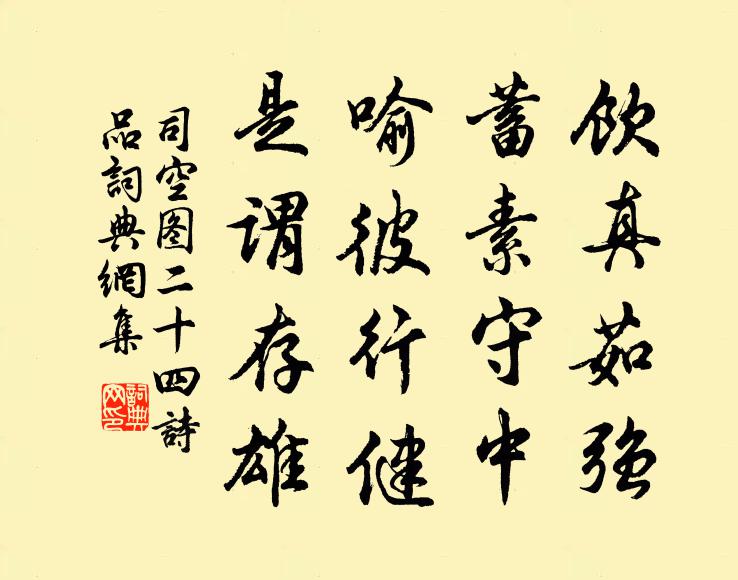 飲真茹強
蓄素守中
喻彼行健
是謂存雄
司空图二十四詩
品詞典網集
詞典
网印